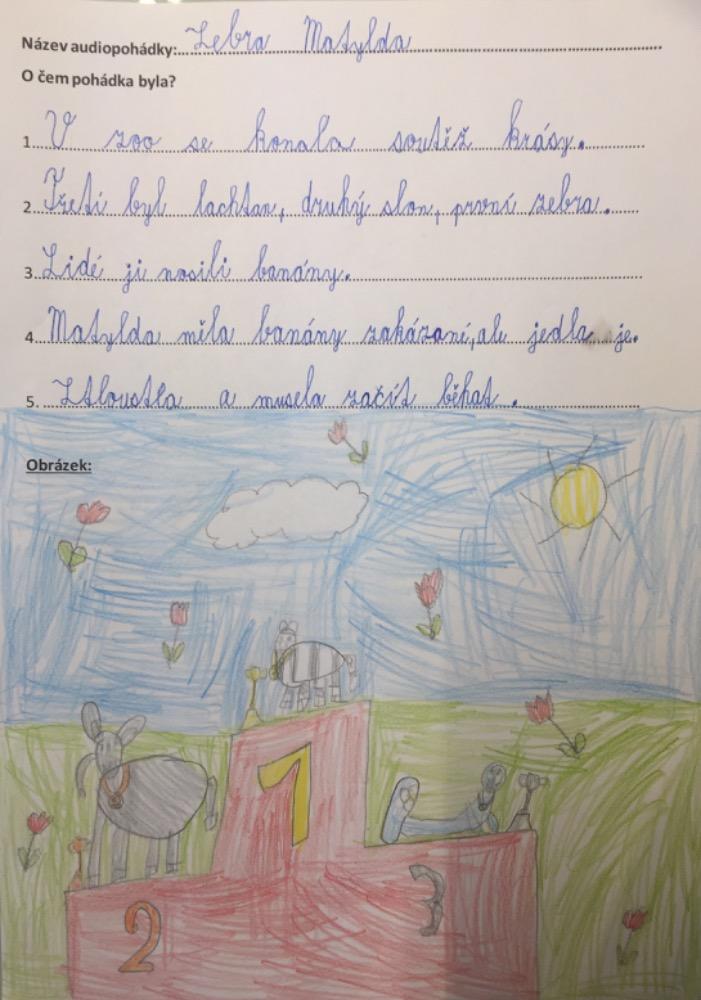 Název audiopohádky: Zebra Matylda
O čem pohádka byla?
1. V zoo se konala soutěž krásy.
2. Třetí byl lachtan, druhý slon, první zebra.
3. Lidé ji nosili banány.
4. Matylda měla banány zakázané, ale jedla je.
5. Ztloustla a musela začít běhat.
Obrázek:
1
2
3